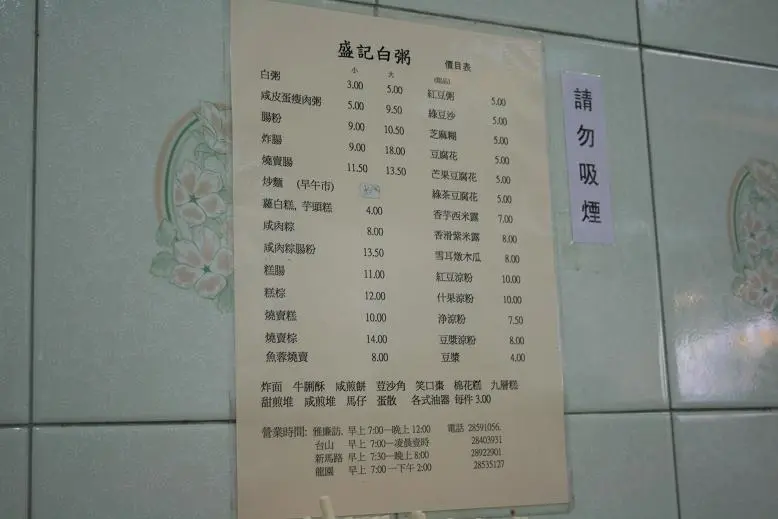 盛記白粥 價目表
小 大 (甜品)
白粥 3.00 5.00 紅豆粥 5.00
咸皮蛋瘦肉粥 5.00 9.50 綠豆沙 5.00
腸粉 9.00 10.50 芝麻糊 5.00
炸腸 9.00 18.00 豆腐花 5.00
燒賣腸 11.50 13.50 芒果豆腐花 5.00
炒麵 (早午市) 綠茶豆腐花 5.00
蘿白糕, 芋頭糕 4.00 香芋西米露 7.00
咸肉粽 8.00 香滑紫米露 8.00
咸肉粽腸粉 13.50 雪耳燉木瓜 8.00
糕腸 11.00 紅豆涼粉 10.00
糕棕 12.00 什果涼粉 10.00
燒賣糕 10.00 净涼粉 7.50
燒賣棕 14.00 豆漿涼粉 8.00
魚蓉燒賣 8.00 豆漿 4.00
炸面 牛脷酥 咸煎餅 荳沙角 笑口棗 棉花糕 九層糕
甜煎堆 咸煎堆 馬仔 蛋散 各式油器 每件 3.00
營業時間: 雅廉訪. 早上 7:00—晚上 12:00 電話 28591056.
台山 早上 7:00—凌晨壹時 28403931
新馬路 早上 7:30—晚上 8:00 28922901
龍園 早上 7:00—下午 2:00 28535127
請勿吸煙